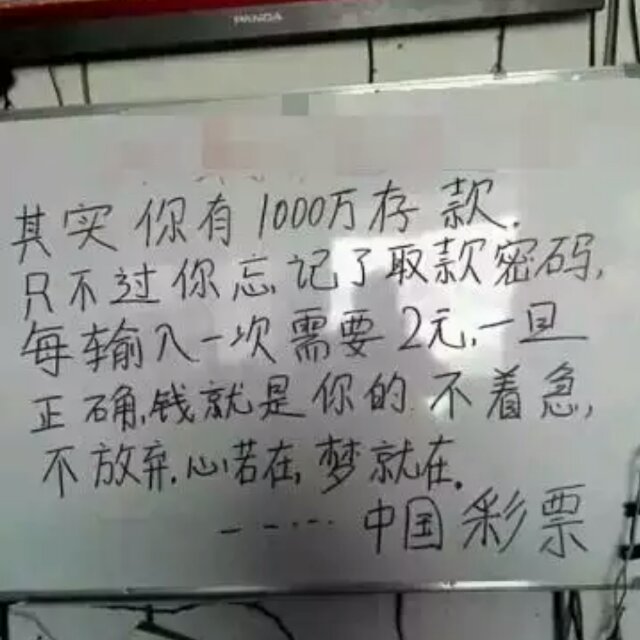 PANDA
其实你有1000万存款.
只不过你忘记了取款密码,
每输入一次需要2元,一旦
正确,钱就是你的.不着急,
不放弃.心若在,梦就在。
-----中国彩票